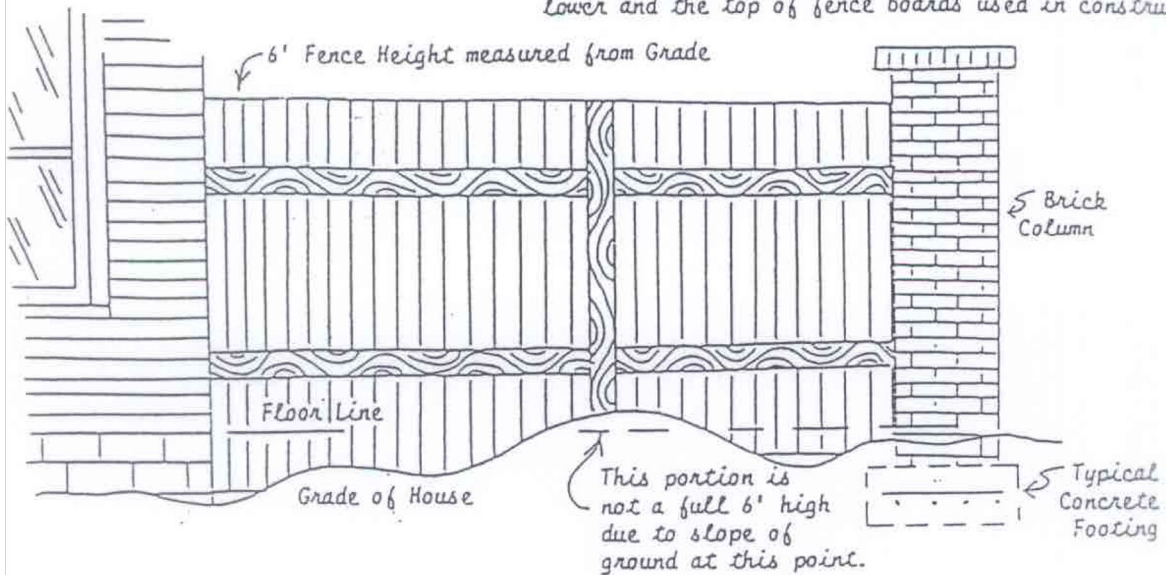 lower and the top of fence boards used in constru
6' Fence Height measured from Grade
Brick
Column
Floor Line
Grade of House
This portion is
not a full 6' high
due to slope of
ground at this point.
Typical
Concrete
Footing